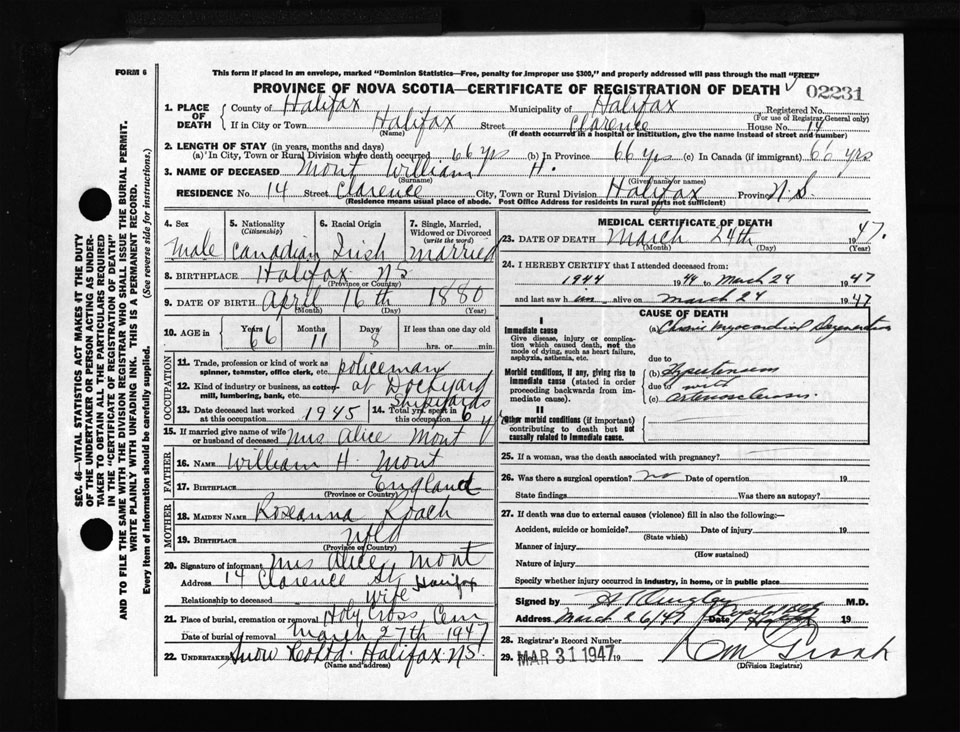 FORM 6
This form if placed in an envelope, marked "Dominion Statistics—Free, penalty for improper use $300," and properly addressed will pass through the mail "FREE"
PROVINCE OF NOVA SCOTIA—CERTIFICATE OF REGISTRATION OF DEATH
02231
1. PLACE OF DEATH
County of Halifax Municipality of Halifax Registered No.
(For use of Registrar General only)
If in City or Town Halifax Street Clarence House No. 14
(Name) (If death occurred in a hospital or institution, give the name instead of street and number)
2. LENGTH OF STAY (in years, months and days)
(a) In City, Town or Rural Division where death occurred 66 yrs (b) In Province 66 yrs (c) In Canada (if immigrant) 66 yrs
3. NAME OF DECEASED Mont William H.
(Surname) (Given name or names)
RESIDENCE No. 14 Street Clarence City, Town or Rural Division Halifax Province N.S.
(Residence means usual place of abode. Post Office Address for residents in rural parts not sufficient)
4. Sex Male
5. Nationality (Citizenship) Canadian
6. Racial Origin Irish
7. Single, Married, Widowed or Divorced (write the word) Married
8. BIRTHPLACE Halifax NS
(Province or Country)
9. DATE OF BIRTH April 16th 1880
(Month) (Day) (Year)
10. AGE in Years 66 Months 11 Days 8 If less than one day old
hrs. or min.
OCCUPATION
11. Trade, profession or kind of work as spinner, teamster, office clerk, etc. policeman
12. Kind of industry or business, as cotton-mill, lumbering, bank, etc. at Dockyard Shipyards
13. Date deceased last worked at this occupation 1945
14. Total yrs. spent in this occupation 6
15. If married give name of wife or husband of deceased Mrs Alice Mont
FATHER
16. NAME William H. Mont
17. BIRTHPLACE England
(Province or Country)
MOTHER
18. MAIDEN NAME Roseanna Roach
19. BIRTHPLACE Nfld
(Province or Country)
20. Signature of informant Mrs Alice Mont
Address 14 Clarence St. Halifax
Relationship to deceased wife
21. Place of burial, cremation or removal Holy Cross Cem
Date of burial or removal March 27th 1947
22. UNDERTAKER Snow & Co Ltd. Halifax NS.
(Name and address)
MEDICAL CERTIFICATE OF DEATH
23. DATE OF DEATH March 24th 1947.
(Month) (Day) (Year)
24. I HEREBY CERTIFY that I attended deceased from:
1944 1944 to March 24 1947
and last saw him alive on March 24 1947
CAUSE OF DEATH
I
Immediate cause
Give disease, injury or complication which caused death, not the mode of dying, such as heart failure, asphyxia, asthenia, etc.
(a) Chronic Myocardial Degeneration
due to
Morbid conditions, if any, giving rise to immediate cause (stated in order proceeding backwards from immediate cause).
(b) Hypertension
due to with
(c) arteriosclerosis.
II
Other morbid conditions (if important) contributing to death but not causally related to immediate cause.
25. If a woman, was the death associated with pregnancy?
26. Was there a surgical operation? no Date of operation 19
State findings Was there an autopsy?
27. If death was due to external causes (violence) fill in also the following:—
Accident, suicide or homicide? Date of injury 19
(State which)
Manner of injury
(How sustained)
Nature of injury
Specify whether injury occurred in industry, in home, or in public place
Signed by M.D.
Address March 26/47 Date 19
28. Registrar's Record Number
29. MAR 31 1947 19
(Division Registrar)
SEC. 46—VITAL STATISTICS ACT MAKES IT THE DUTY
OF THE UNDERTAKER OR PERSON ACTING AS UNDERTAKER
TO OBTAIN ALL THE PARTICULARS REQUIRED
IN THE "CERTIFICATE OF REGISTRATION OF DEATH"
AND TO FILE THE SAME WITH THE DIVISION REGISTRAR WHO SHALL ISSUE THE BURIAL PERMIT.
WRITE PLAINLY WITH UNFADING INK. THIS IS A PERMANENT RECORD.
Every item of information should be carefully supplied. (See reverse side for instructions.)